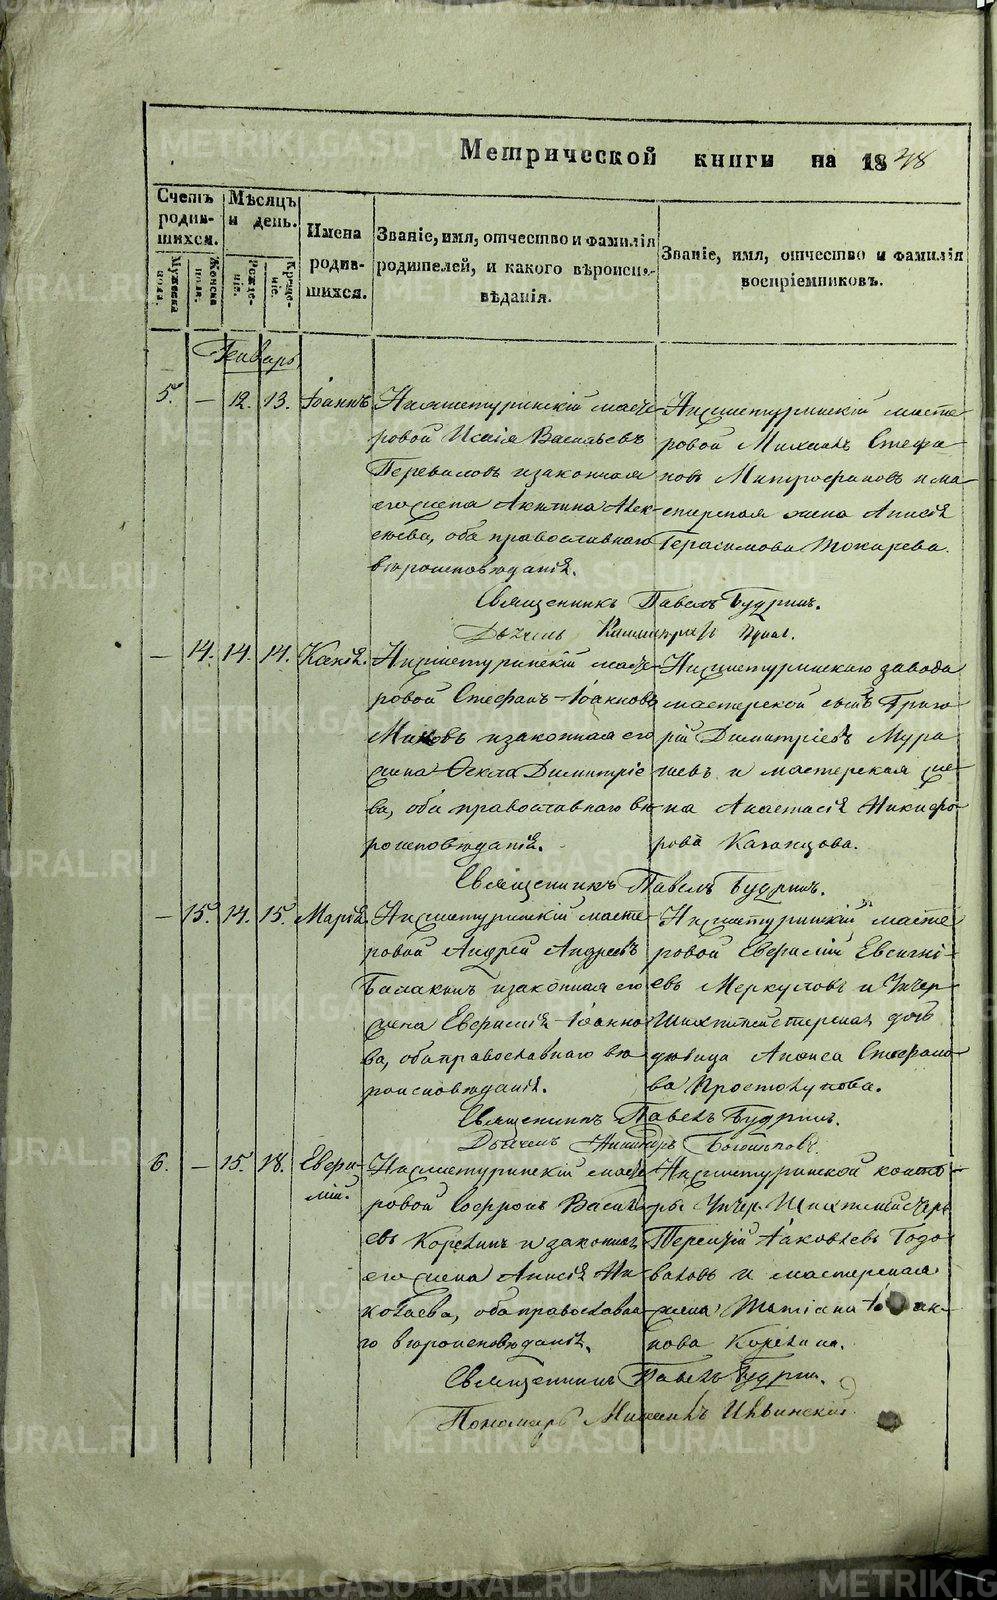 Метрической книги на 1848
Счетъ родив-
шихся.
Мужеска пола.
Женска пола.
Мѣсяцъ
и день.
Рожде-
нія.
Креще-
ніе.
Имена
родив-
шихся.
Званіе, имя, отчество и фамилія
родителей, и какого вѣроиспо-
вѣданія.
Званіе, имя, отчество и фамилія
воспріемниковъ.
Генварь
5. — 12. 13. Іоаннъ
Нижнетуринскій масте-
ровой Исаія Васильевъ
Переваловъ и законная
его жена Акилина Алек-
сѣева, оба православнаго
вѣроисповѣданія.
Нижнетуринскій масте
ровой Михаилъ Стефа-
новъ Митрофановъ и ма-
стерская жена Анисія
Герасимова Токарева.
Священникъ Павелъ Будринъ.
— 14. 14. 14. Ксенія.
Нижнетуринскій масте-
ровой Стефанъ Іоанновъ
и законная его
жена Ѳекла Димитріе
ва, оба православнаго вѣ
роисповѣданія.
Нижнетуринскаго завода
мастерской сынъ Григо
рій Димитріевъ Мура
шевъ и мастерская же-
на Анастасія Никифо-
рова Казанцова.
Священникъ Павелъ Будринъ.
— 15. 14. 15. Марія
Нижнетуринскій масте
ровой Андрей Андреевъ
Балакинъ и законная его
жена Евфимія Іоанно
ва, оба православнаго вѣ
роисповѣданія.
Нижнетуринскій масте
ровой Евфимій Евсигні-
евъ Меркуловъ и Унтер
шихтмейстерская дочь
дѣвица Анфиса Стефано
ва Простолупова.
Священникъ Павелъ Будринъ.
6. — 15. 18. Евфи-
мій.
Нижнетуринскій масте
ровой Софронъ Василь
евъ Корелинъ и законная
его жена Анисія Ни
колаева, оба православна
го вѣроисповѣданія.
Нижнетуринской конто-
ры Унтер Шихтмейстеръ
Терентій Іаковлевъ Годо
валовъ и мастерская
жена Татіана Іоан-
нова Корелина.
Священникъ Павелъ Будринъ.
Пономарь Михаилъ Ильвинскій
METRIKI.GASO-URAL.RU